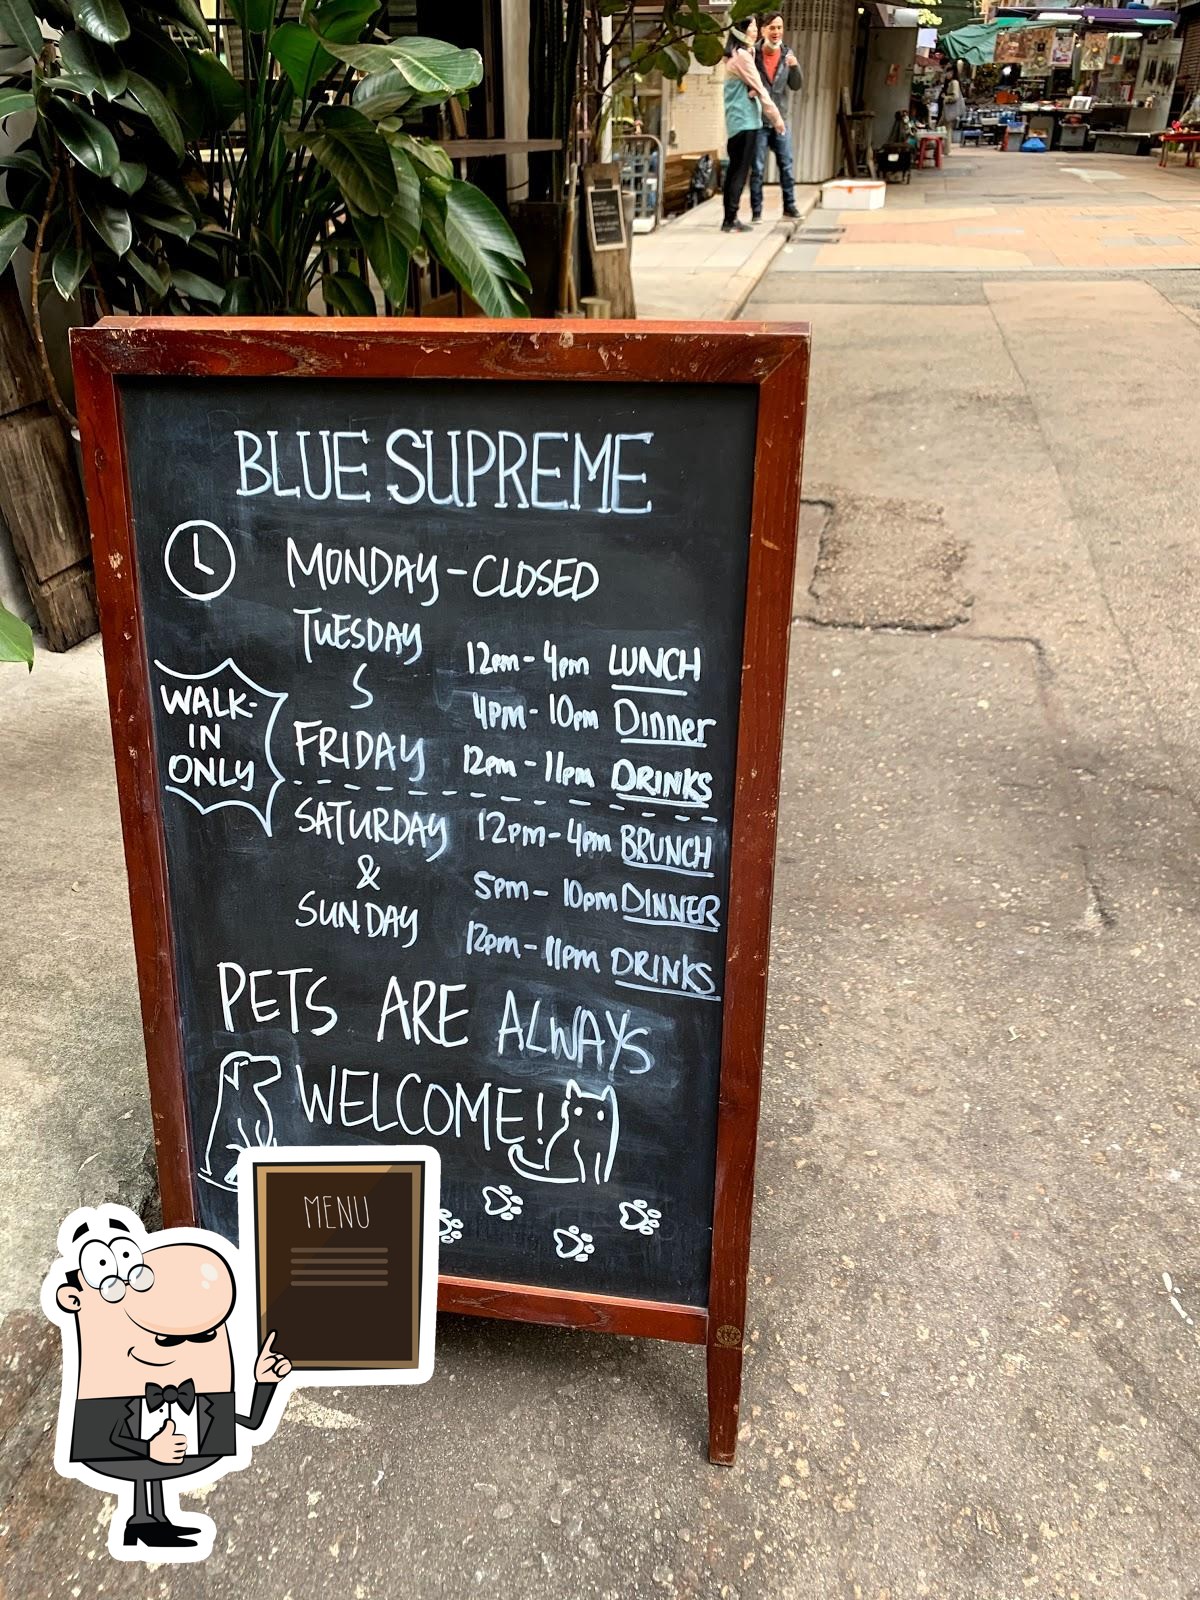 BLUE SUPREME
MONDAY - CLOSED
TUESDAY
S
FRIDAY
12pm - 4pm LUNCH
4PM - 10pm Dinner
12pm - 11pm DRINKS
WALK-
IN
ONLY
SATURDAY
&
SUNDAY
12pm - 4pm BRUNCH
5pm - 10pm DINNER
12pm - 11pm DRINKS
PETS ARE ALWAYS
WELCOME!
MENU